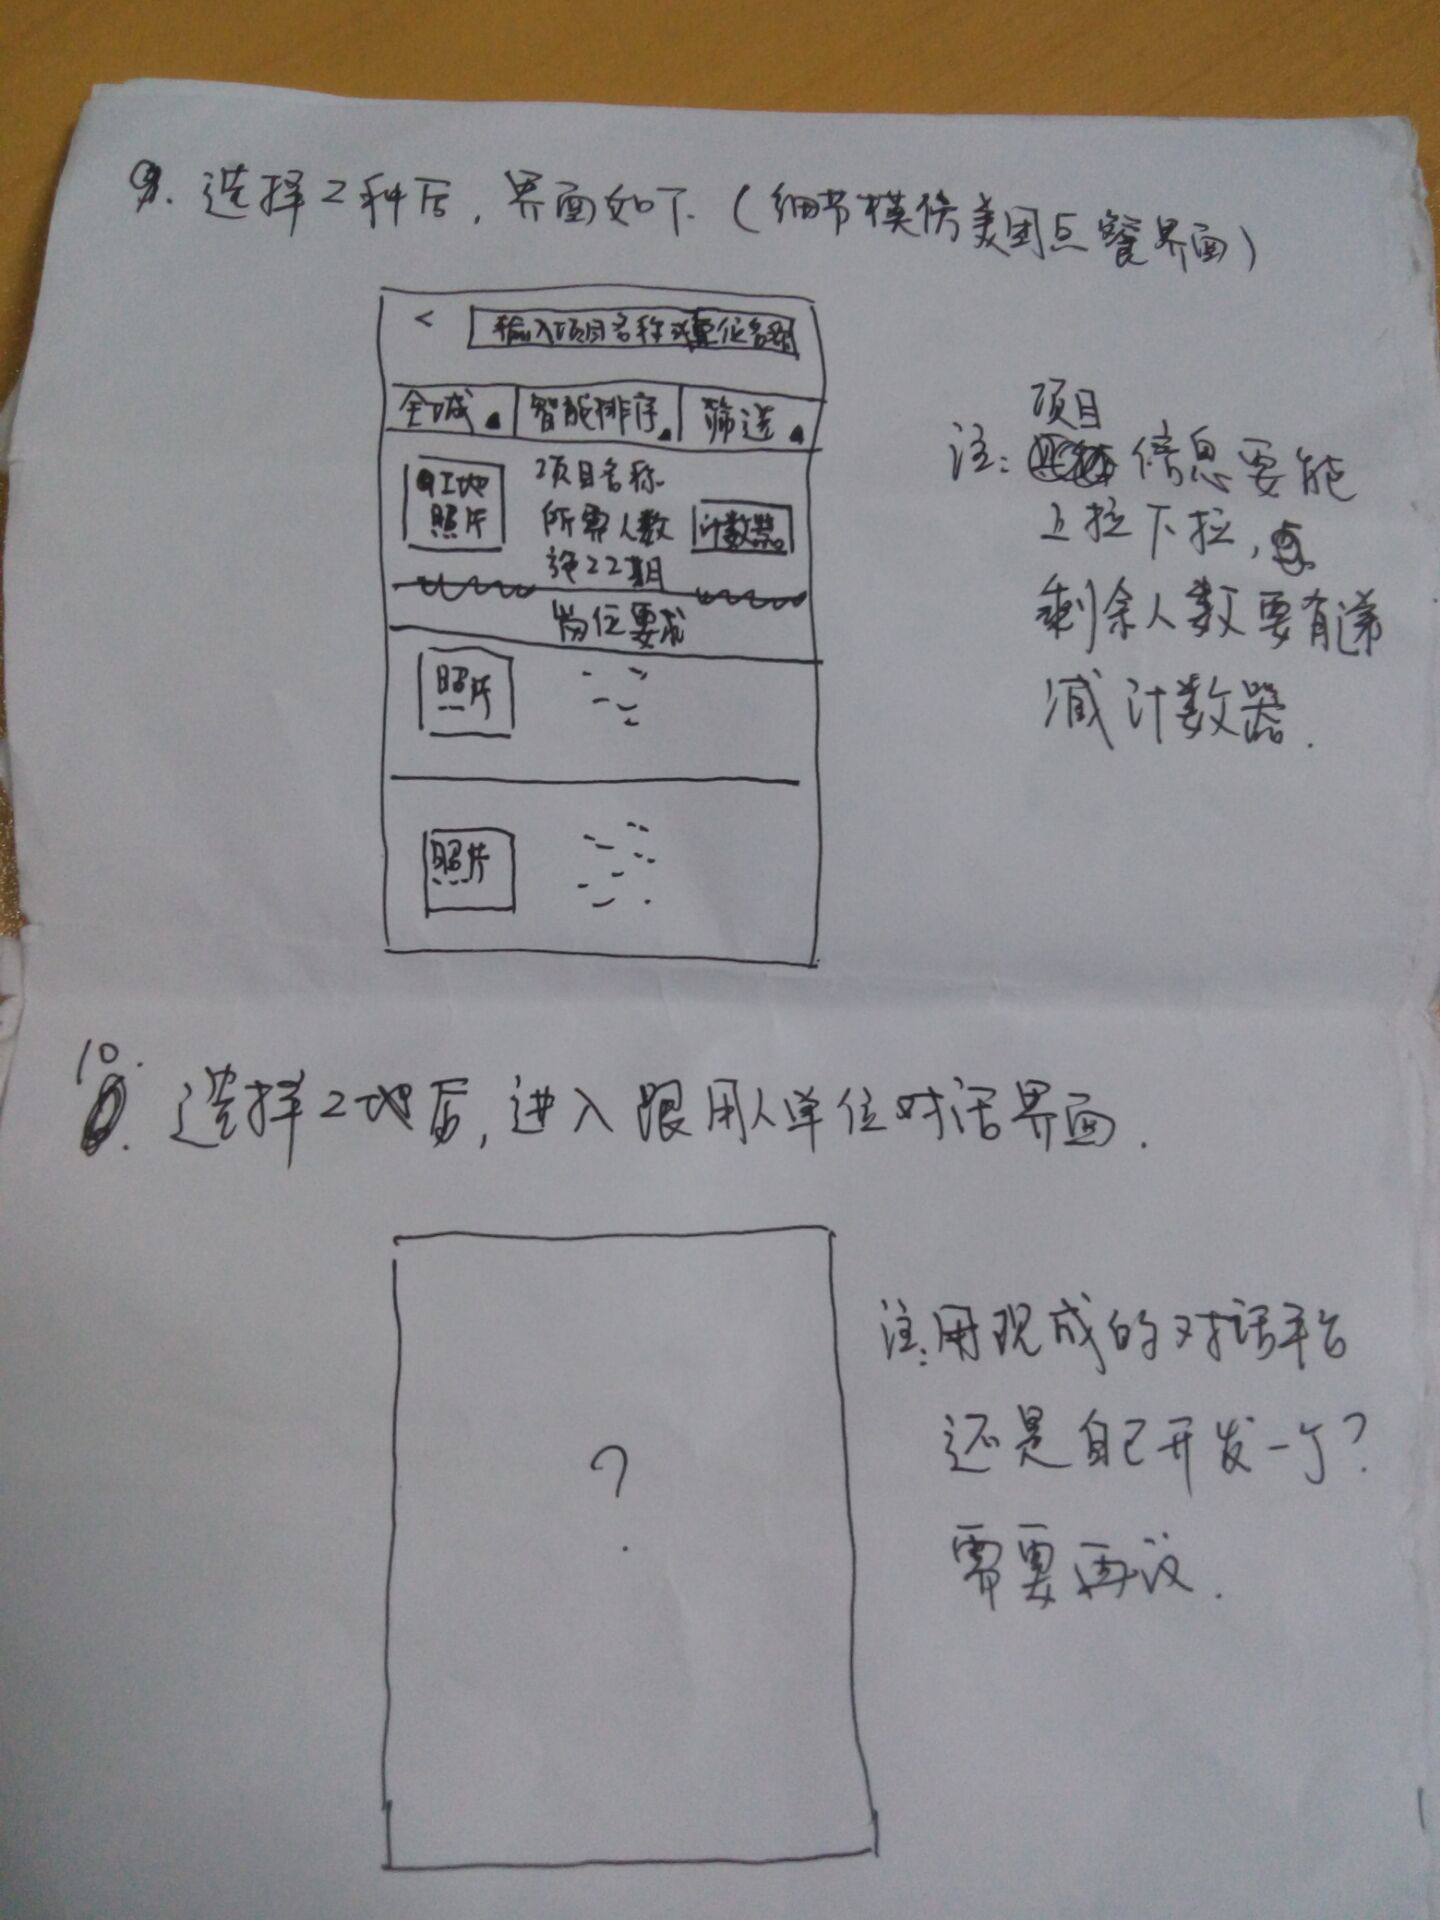 9. 选择工种后，界面如下（细节模仿美团点餐界面）
<
输入项目名称或单位名称
全城 智能排序 筛选
工地
照片
项目名称
所需人数
施工工期
岗位要求
计数器
照片
照片
注：项目信息要能
上拉下拉，
剩余人数要有递
减计数器.
10. 选择工地后，进入跟用人单位对话界面.
?
注：用现成的对话平台
还是自己开发一个？
需要再议.